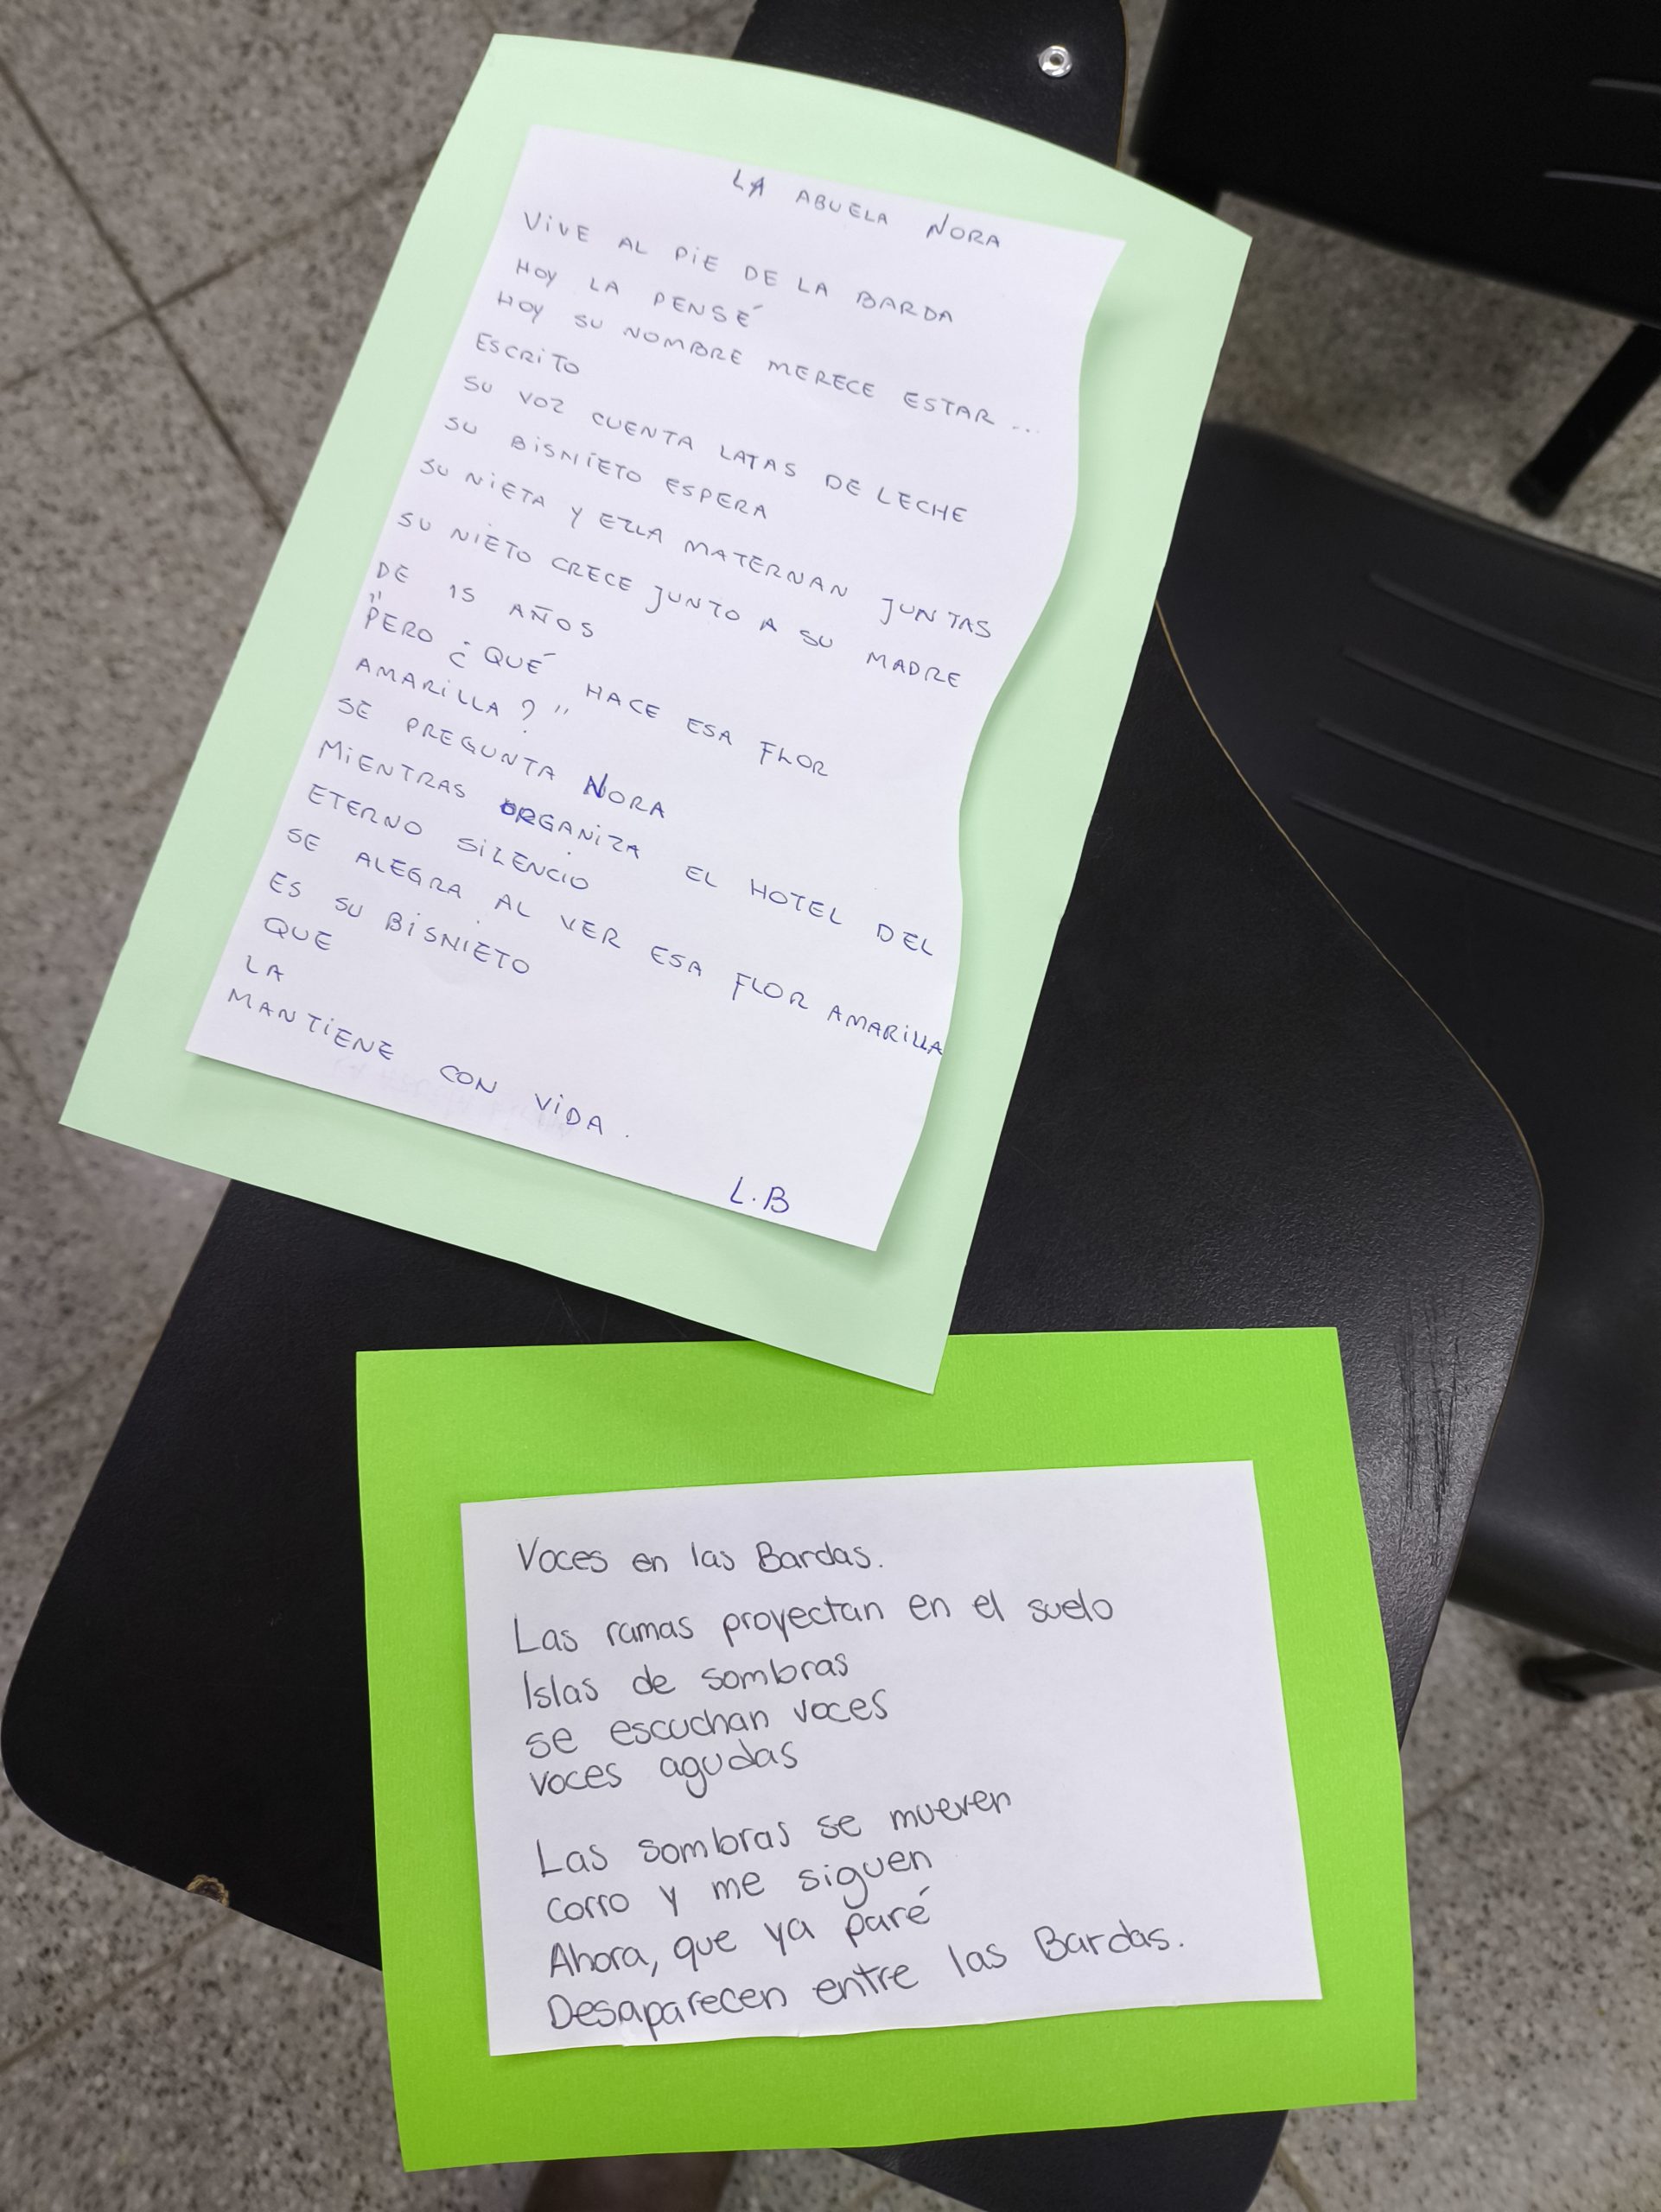 LA ABUELA NORA
ViVE AL PiE DE LA BARDA
HOY LA PENSÉ
HOY SU NOMBRE MERECE ESTAR...
ESCRiTO
SU VOZ CUENTA LATAS DE LECHE
SU BiSNiETO ESPERA
SU NiETA Y ELLA MATERNAN JUNTAS
SU NIETO CRECE JUNTO A SU MADRE
DE 15 AÑOS
"PERO ¿QUÉ HACE ESA FLOR
AMARiLLA?"
SE PREGUNTA NORA
MiENTRAS ORGANiZA EL HOTEL DEL
ETERNO SiLENCiO
SE ALEGRA AL VER ESA FLOR AMARiLLA
ES SU BiSNIETO
QUE
LA
MANTiENE CON ViDA.
L.B
Voces en las Bardas.
Las ramas proyectan en el suelo
Islas de sombras
se escuchan voces
voces agudas
Las sombras se mueven
corro y me siguen
Ahora, que ya paré
Desaparecen entre las Bardas.